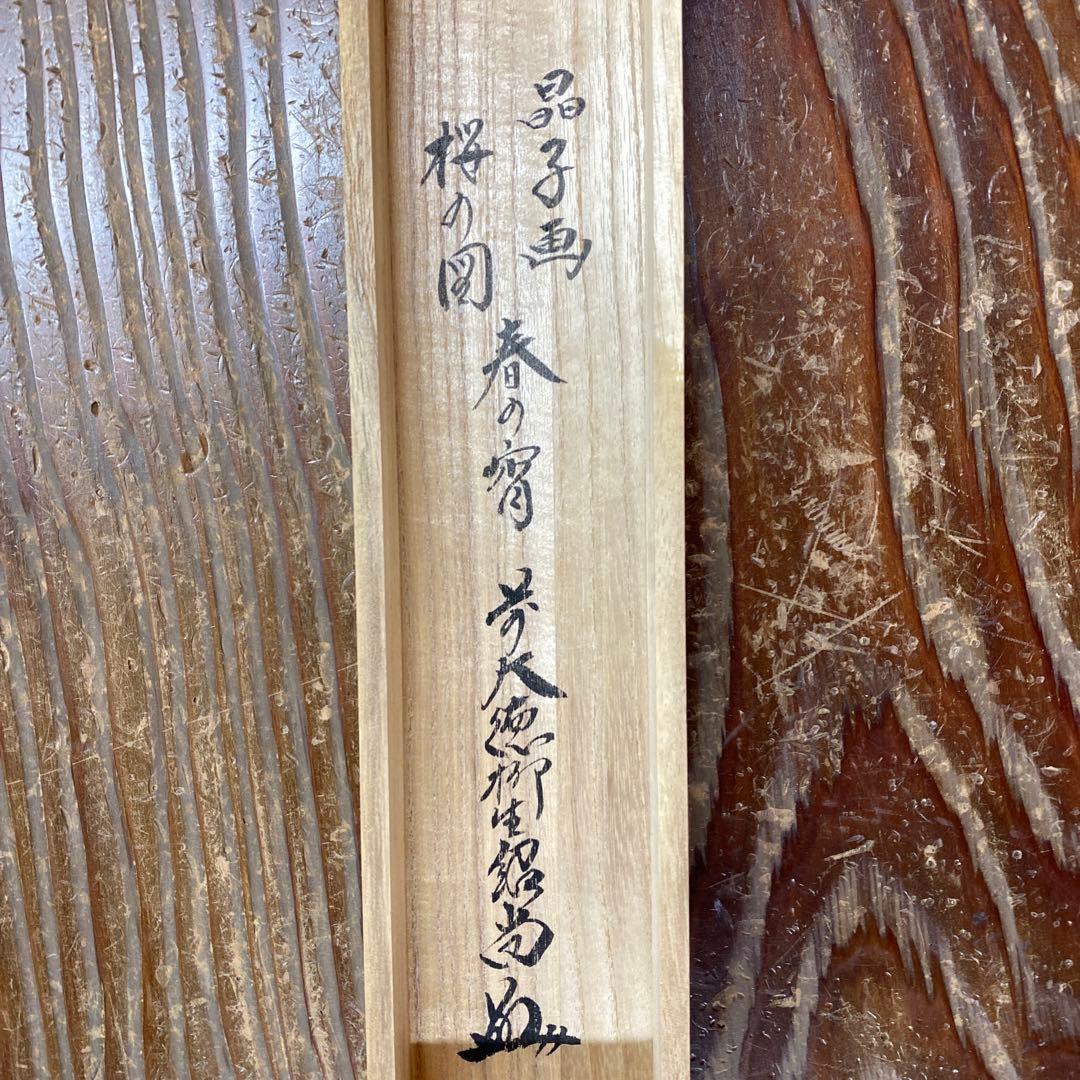 晶子画
桜の図
春の宵
前大徳柳生紹尚